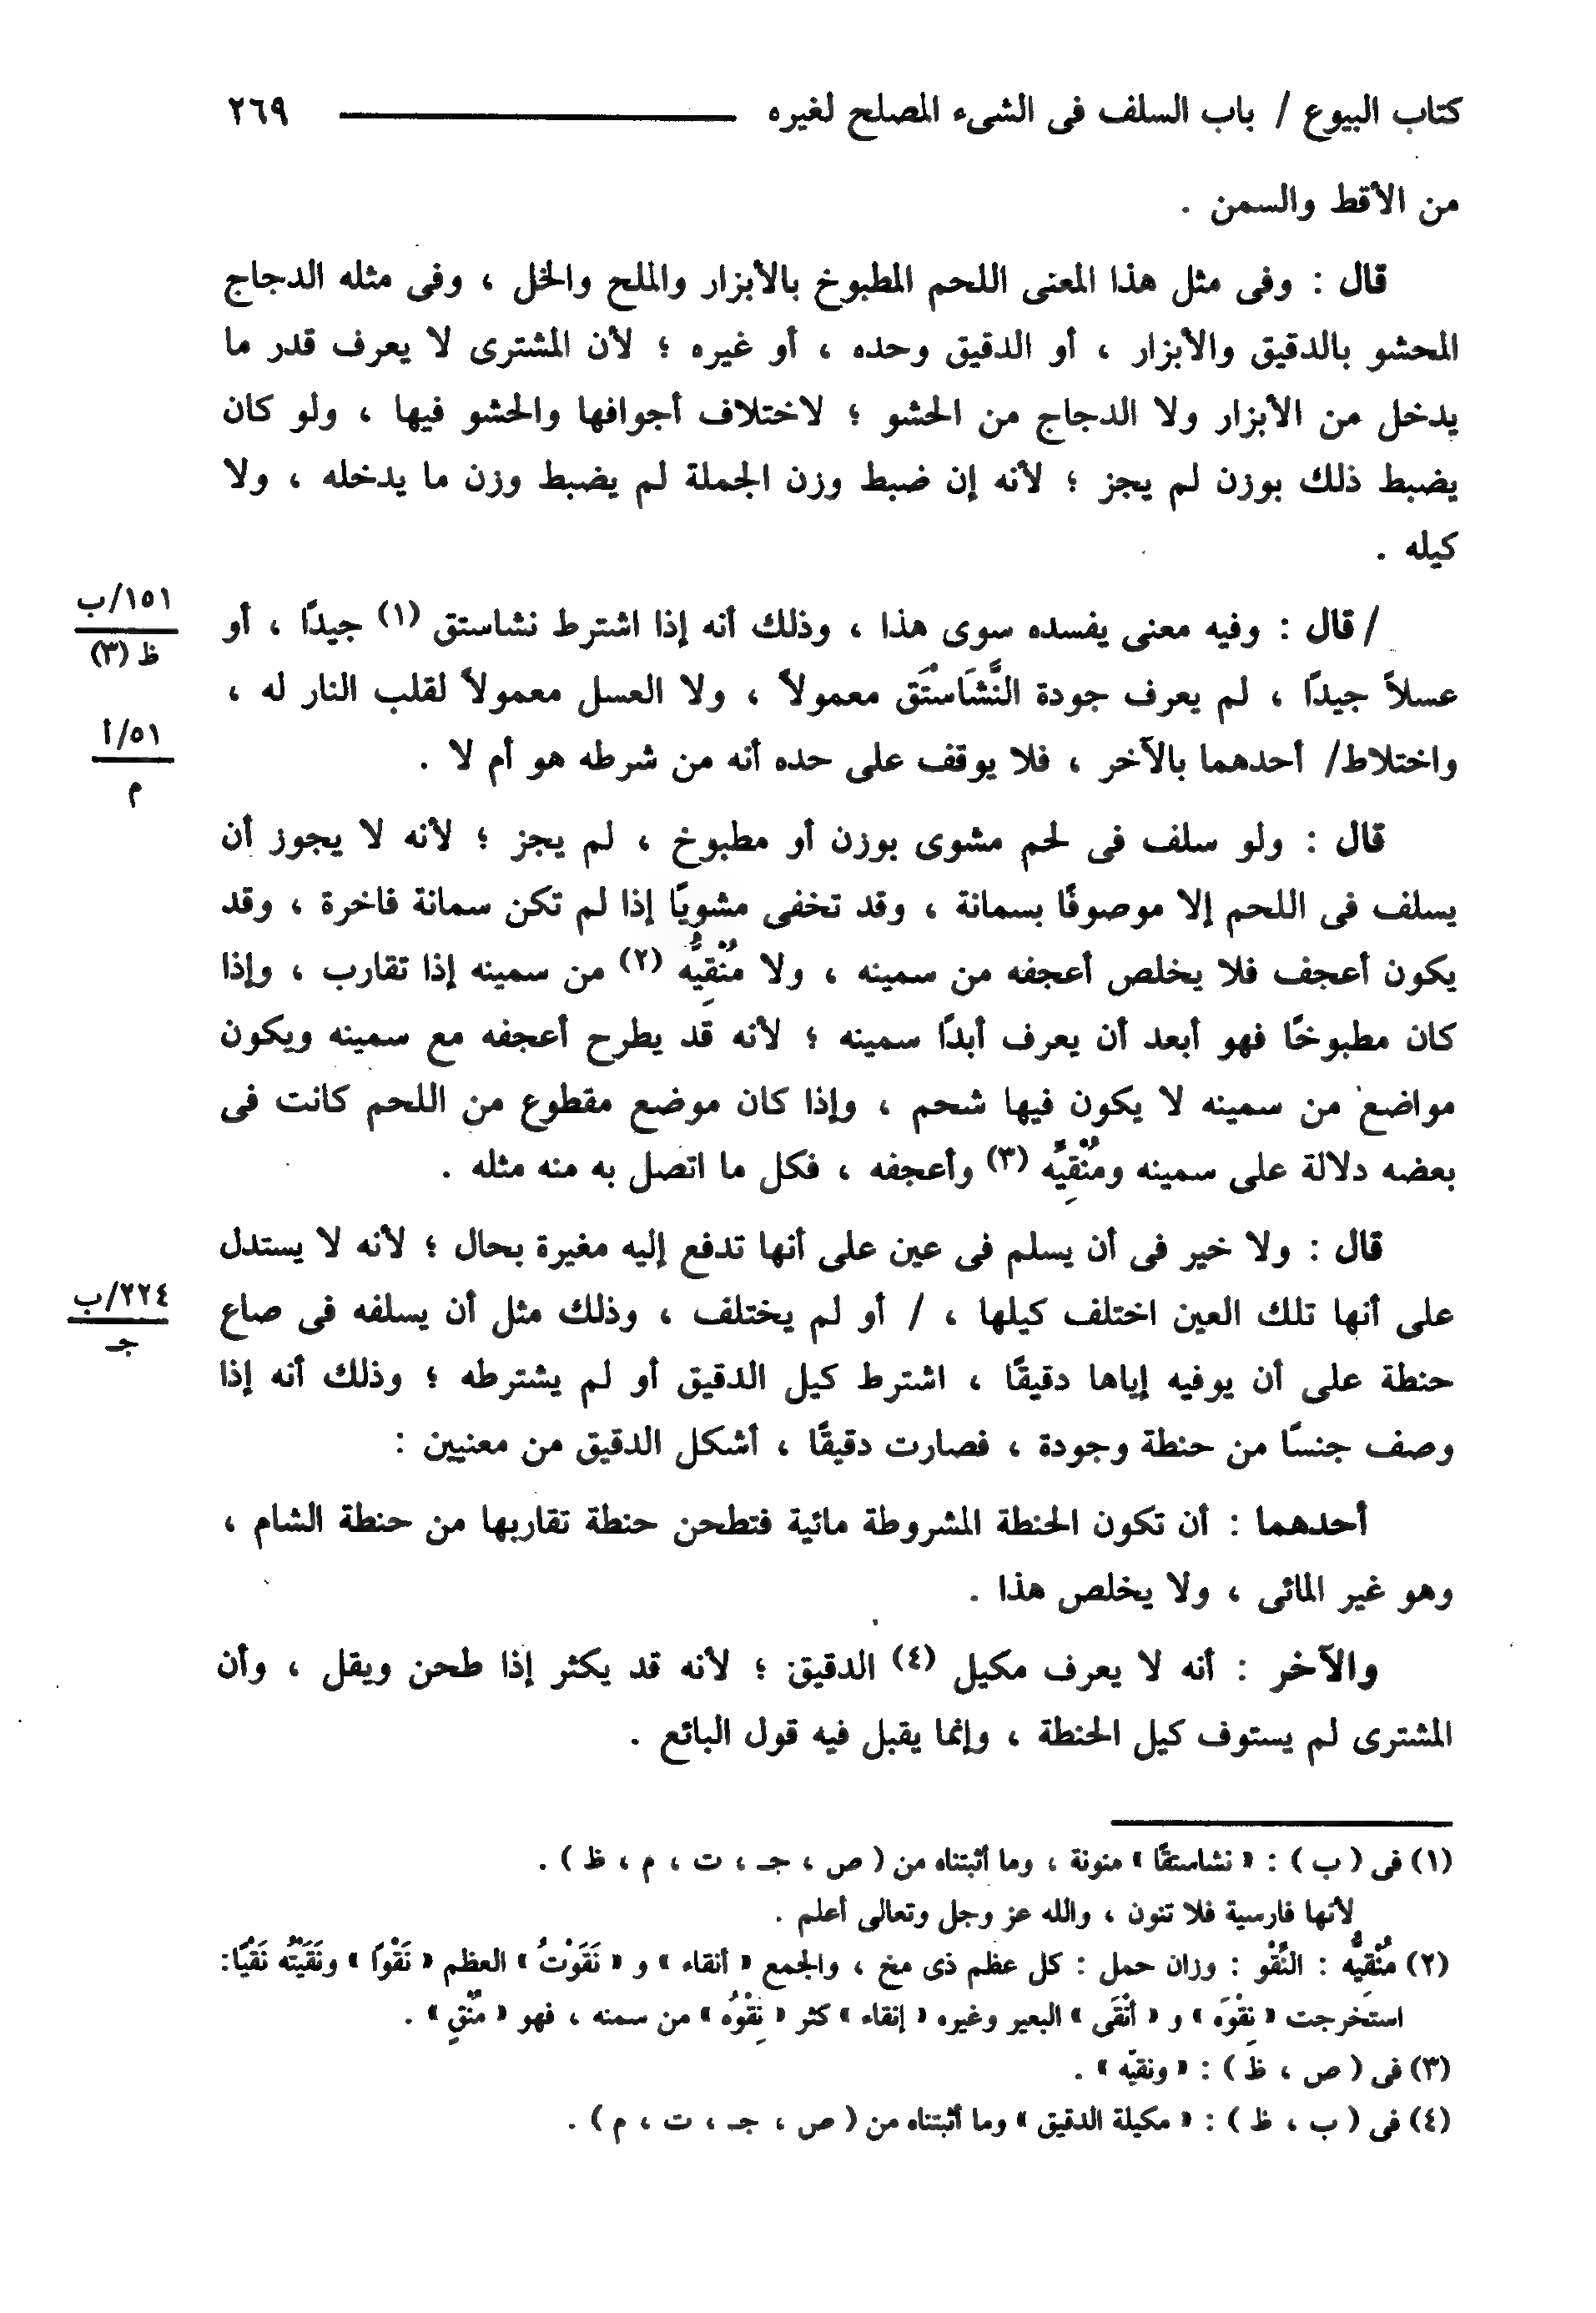 كتاب البيوع / باب السلف فى الشىء المصلح لغيره ٢٦٩
من الأقط والسمن .
قال : وفى مثل هذا المعنى اللحم المطبوخ بالأبزار والملح والخل ، وفى مثله الدجاج
المحشو بالدقيق والأبزار ، أو الدقيق وحده ، أو غيره ؛ لأن المشترى لا يعرف قدر ما
يدخل من الأبزار ولا الدجاج من الحشو ؛ لاختلاف أجوافها والحشو فيها ، ولو كان
يضبط ذلك بوزن لم يجز ؛ لأنه إن ضبط وزن الجملة لم يضبط وزن ما يدخله ، ولا
كيله .
١٥١/ب
ظ (٣)
/ قال : وفيه معنى يفسده سوى هذا ، وذلك أنه إذا اشترط نشاستق (١) جيدًا ، أو
عسلاً جيدًا ، لم يعرف جودة النَّشَاسْتَق معمولاً ، ولا العسل معمولاً لقلب النار له ،
٥١/أ
م
واختلاط/ أحدهما بالآخر ، فلا يوقف على حده أنه من شرطه هو أم لا .
قال : ولو سلف فى لحم مشوى بوزن أو مطبوخ ، لم يجز ؛ لأنه لا يجوز أن
يسلف فى اللحم إلا موصوفًا بسمانة ، وقد تخفى مشويًا إذا لم تكن سمانة فاخرة ، وقد
يكون أعجف فلا يخلص أعجفه من سمينه ، ولا مُنْقِيُّه (٢) من سمينه إذا تقارب ، وإذا
كان مطبوخًا فهو أبعد أن يعرف أبدًا سمينه ؛ لأنه قد يطرح أعجفه مع سمينه ويكون
مواضع من سمينه لا يكون فيها شحم ، وإذا كان موضع مقطوع من اللحم كانت فى
بعضه دلالة على سمينه ومُنْقِيِّه (٣) وأعجفه ، فكل ما اتصل به منه مثله .
قال : ولا خير فى أن يسلم فى عين على أنها تدفع إليه مغيرة بحال ؛ لأنه لا يستدل
٢٢٤/ب
جـ
على أنها تلك العين اختلف كيلها ، / أو لم يختلف ، وذلك مثل أن يسلفه فى صاع
حنطة على أن يوفيه إياها دقيقًا ، اشترط كيل الدقيق أو لم يشترطه ؛ وذلك أنه إذا
وصف جنسًا من حنطة وجودة ، فصارت دقيقًا ، أشكل الدقيق من معنيين :
أحدهما : أن تكون الحنطة المشروطة مائية فتطحن حنطة تقاربها من حنطة الشام ،
وهو غير المائى ، ولا يخلص هذا .
والآخر : أنه لا يعرف مكيل (٤) الدقيق ؛ لأنه قد يكثر إذا طحن ويقل ، وأن
المشترى لم يستوف كيل الحنطة ، وإنما يقبل فيه قول البائع .
(١) فى ( ب ) : « نشاستقًا » منونة ، وما أثبتناه من ( ص ، جـ ، ت ، م ، ظ ) .
لأنها فارسية فلا تنون ، والله عز وجل وتعالى أعلم .
(٢) مُنْقِيُّه : النِّقْو : وزان حمل : كل عظم ذى مخ ، والجمع « أنقاء » و « نَقَوْتُ » العظم « نَقْوًا » ونَقَيْتُه نَقْيًا:
استخرجت « نِقْوَه » و « أنْقَى » البعير وغيره « إنقاء » كثر « نِقْوُه » من سمنه ، فهو « مُنْقٍ » .
(٣) فى ( ص ، ظ ) : « ونقيِّه » .
(٤) فى ( ب ، ظ ) : « مكيلة الدقيق » وما أثبتناه من ( ص ، جـ ، ت ، م ) .